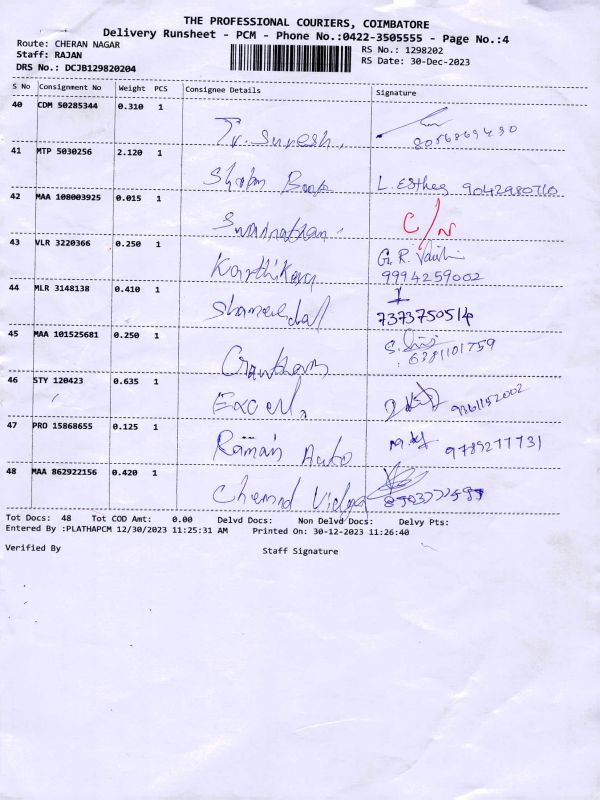 THE PROFESSIONAL COURIERS, COIMBATORE
Delivery Runsheet - PCM - Phone No.:0422-3505555 - Page No.:4
Route: CHERAN NAGAR
RS No.: 1298202
Staff: RAJAN
RS Date: 30-Dec-2023
DRS No.: DCJB129820204
S No Consignment No Weight PCS Consignee Details Signature
40 CDM 50285344 0.310 1
Tv. Suresh,
41 MTP 5030256 2.120 1
L. Esther 9042980710
42 MAA 108003925 0.015 1
Swaminathan C/N
43 VLR 3220366 0.250 1 G. R.
Karthikeya 9994259002
44 MLR 3148138 0.410 1
7373750514
45 MAA 101525681 0.250 1
6381101759
46 STY 120423 0.635 1
Excel,
47 PRO 15868655 0.125 1
Raman Auto 9789277731
48 MAA 862922156 0.420 1
Tot Docs: 48 Tot COD Amt: 0.00 Delvd Docs: Non Delvd Docs: Delvy Pts:
Entered By :PLATHAPCM 12/30/2023 11:25:31 AM Printed On: 30-12-2023 11:26:40
Verified By Staff Signature